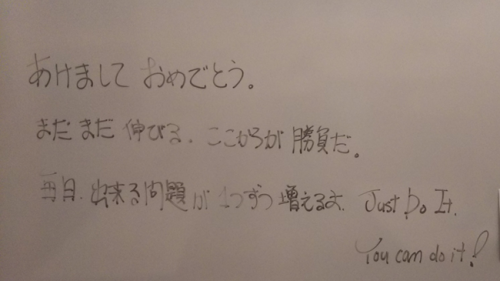 あけまして おめでとう。
まだまだ伸びる、ここからが勝負だ。
毎日、出来る問題が1つずつ増えるよ、Just Do It.
You can do it!